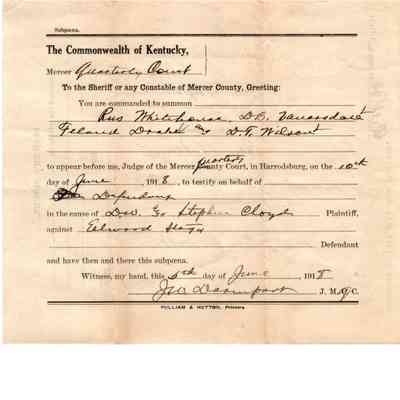 Subpoena.
The Commonwealth of Kentucky,
Mercer Quarterly Court
To the Sheriff or any Constable of Mercer County, Greeting:
You are commanded to summon
Rus Whitehouse, D.B. Vanarsdall
Leland Drake D.T. Wilson
to appear before me, Judge of the Mercer Quarterly County Court, in Harrodsburg, on the 10th
day of June, 1918, to testify on behalf of
Defendant
in the cause of Stephen Cloyd Plaintiff,
against Elwood
Defendant
and have then and there this subpœna.
Witness, my hand, this 5th day of June, 1918
J. M. Q. C.
PULLIAM & HUTTON, Printers